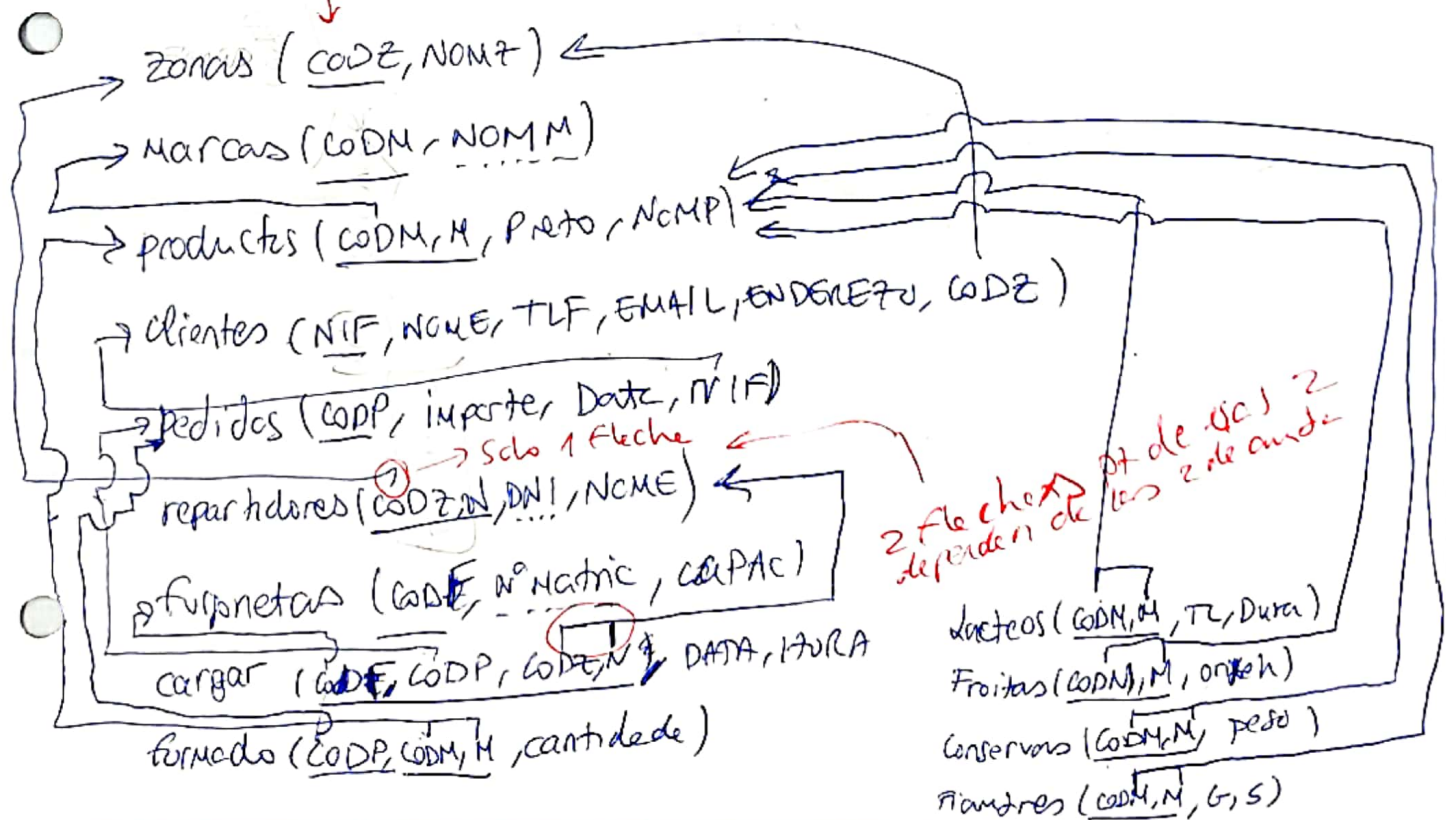 Zonas (CODZ, NOMZ)
Marcas (CODM, NOMM)
productos (CODM, M, Prezo, NOMP)
clientes (NIF, NOME, TLF, EMAIL, ENDEREZO, CODZ)
pedidos (CODP, importe, Data, NIF)
→ Solo 1 fleche
repartidores (CODZ, N, DNI, NOME)
2 flechas de las 2
dependen de las 2 de
furgonetas (CODF, Nº Matric, CAPAC)
cargar (CODF, CODP, CODZ, N, DATA, HORA
formado (CODP, CODM, M, cantidade)
Lacteos (CODM, M, TL, Dura)
Froitas (CODM, M, orixen)
Conservas (CODM, M, peso)
Fiambres (CODM, M, G, S)